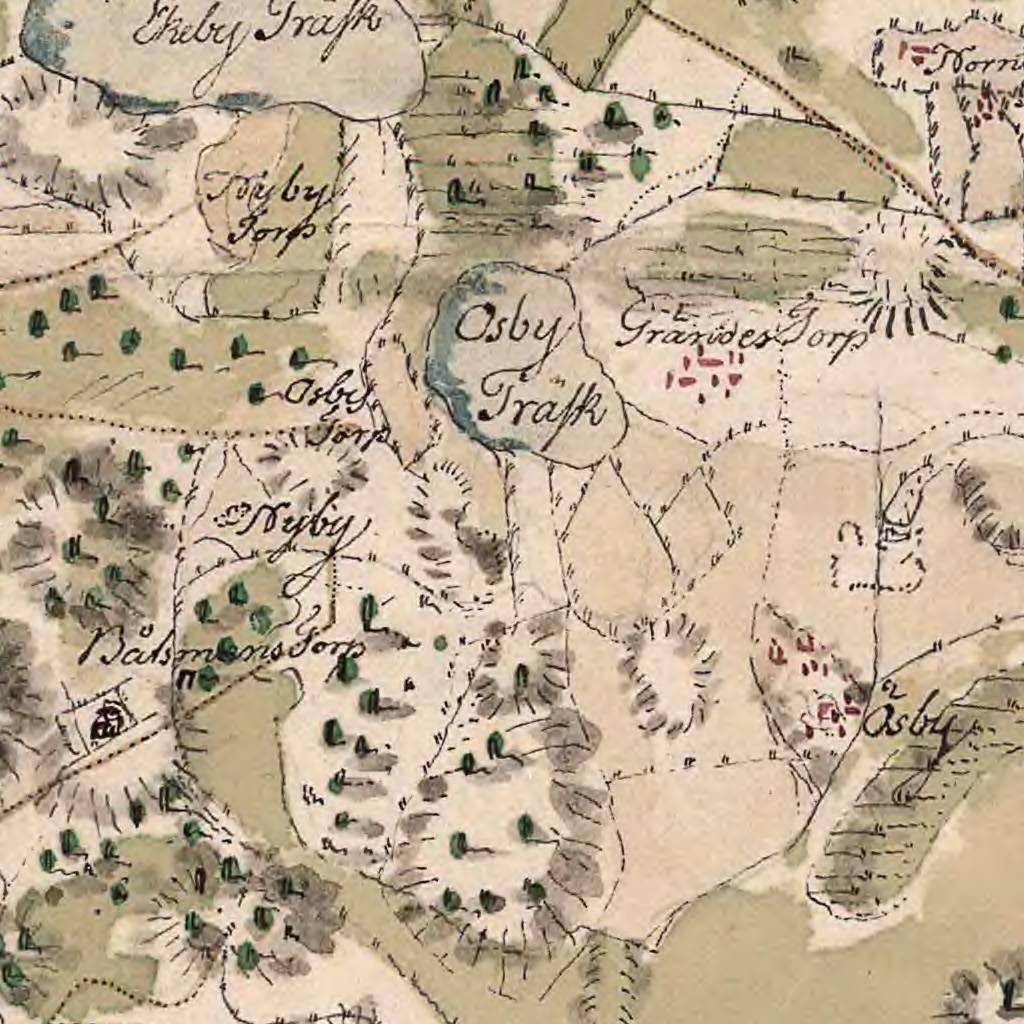 Ekeby Träsk
Norri
Nyby
Torp
Osby
Träsk
Osby
Torp
Nyby
Båtsmans Torp
Osby